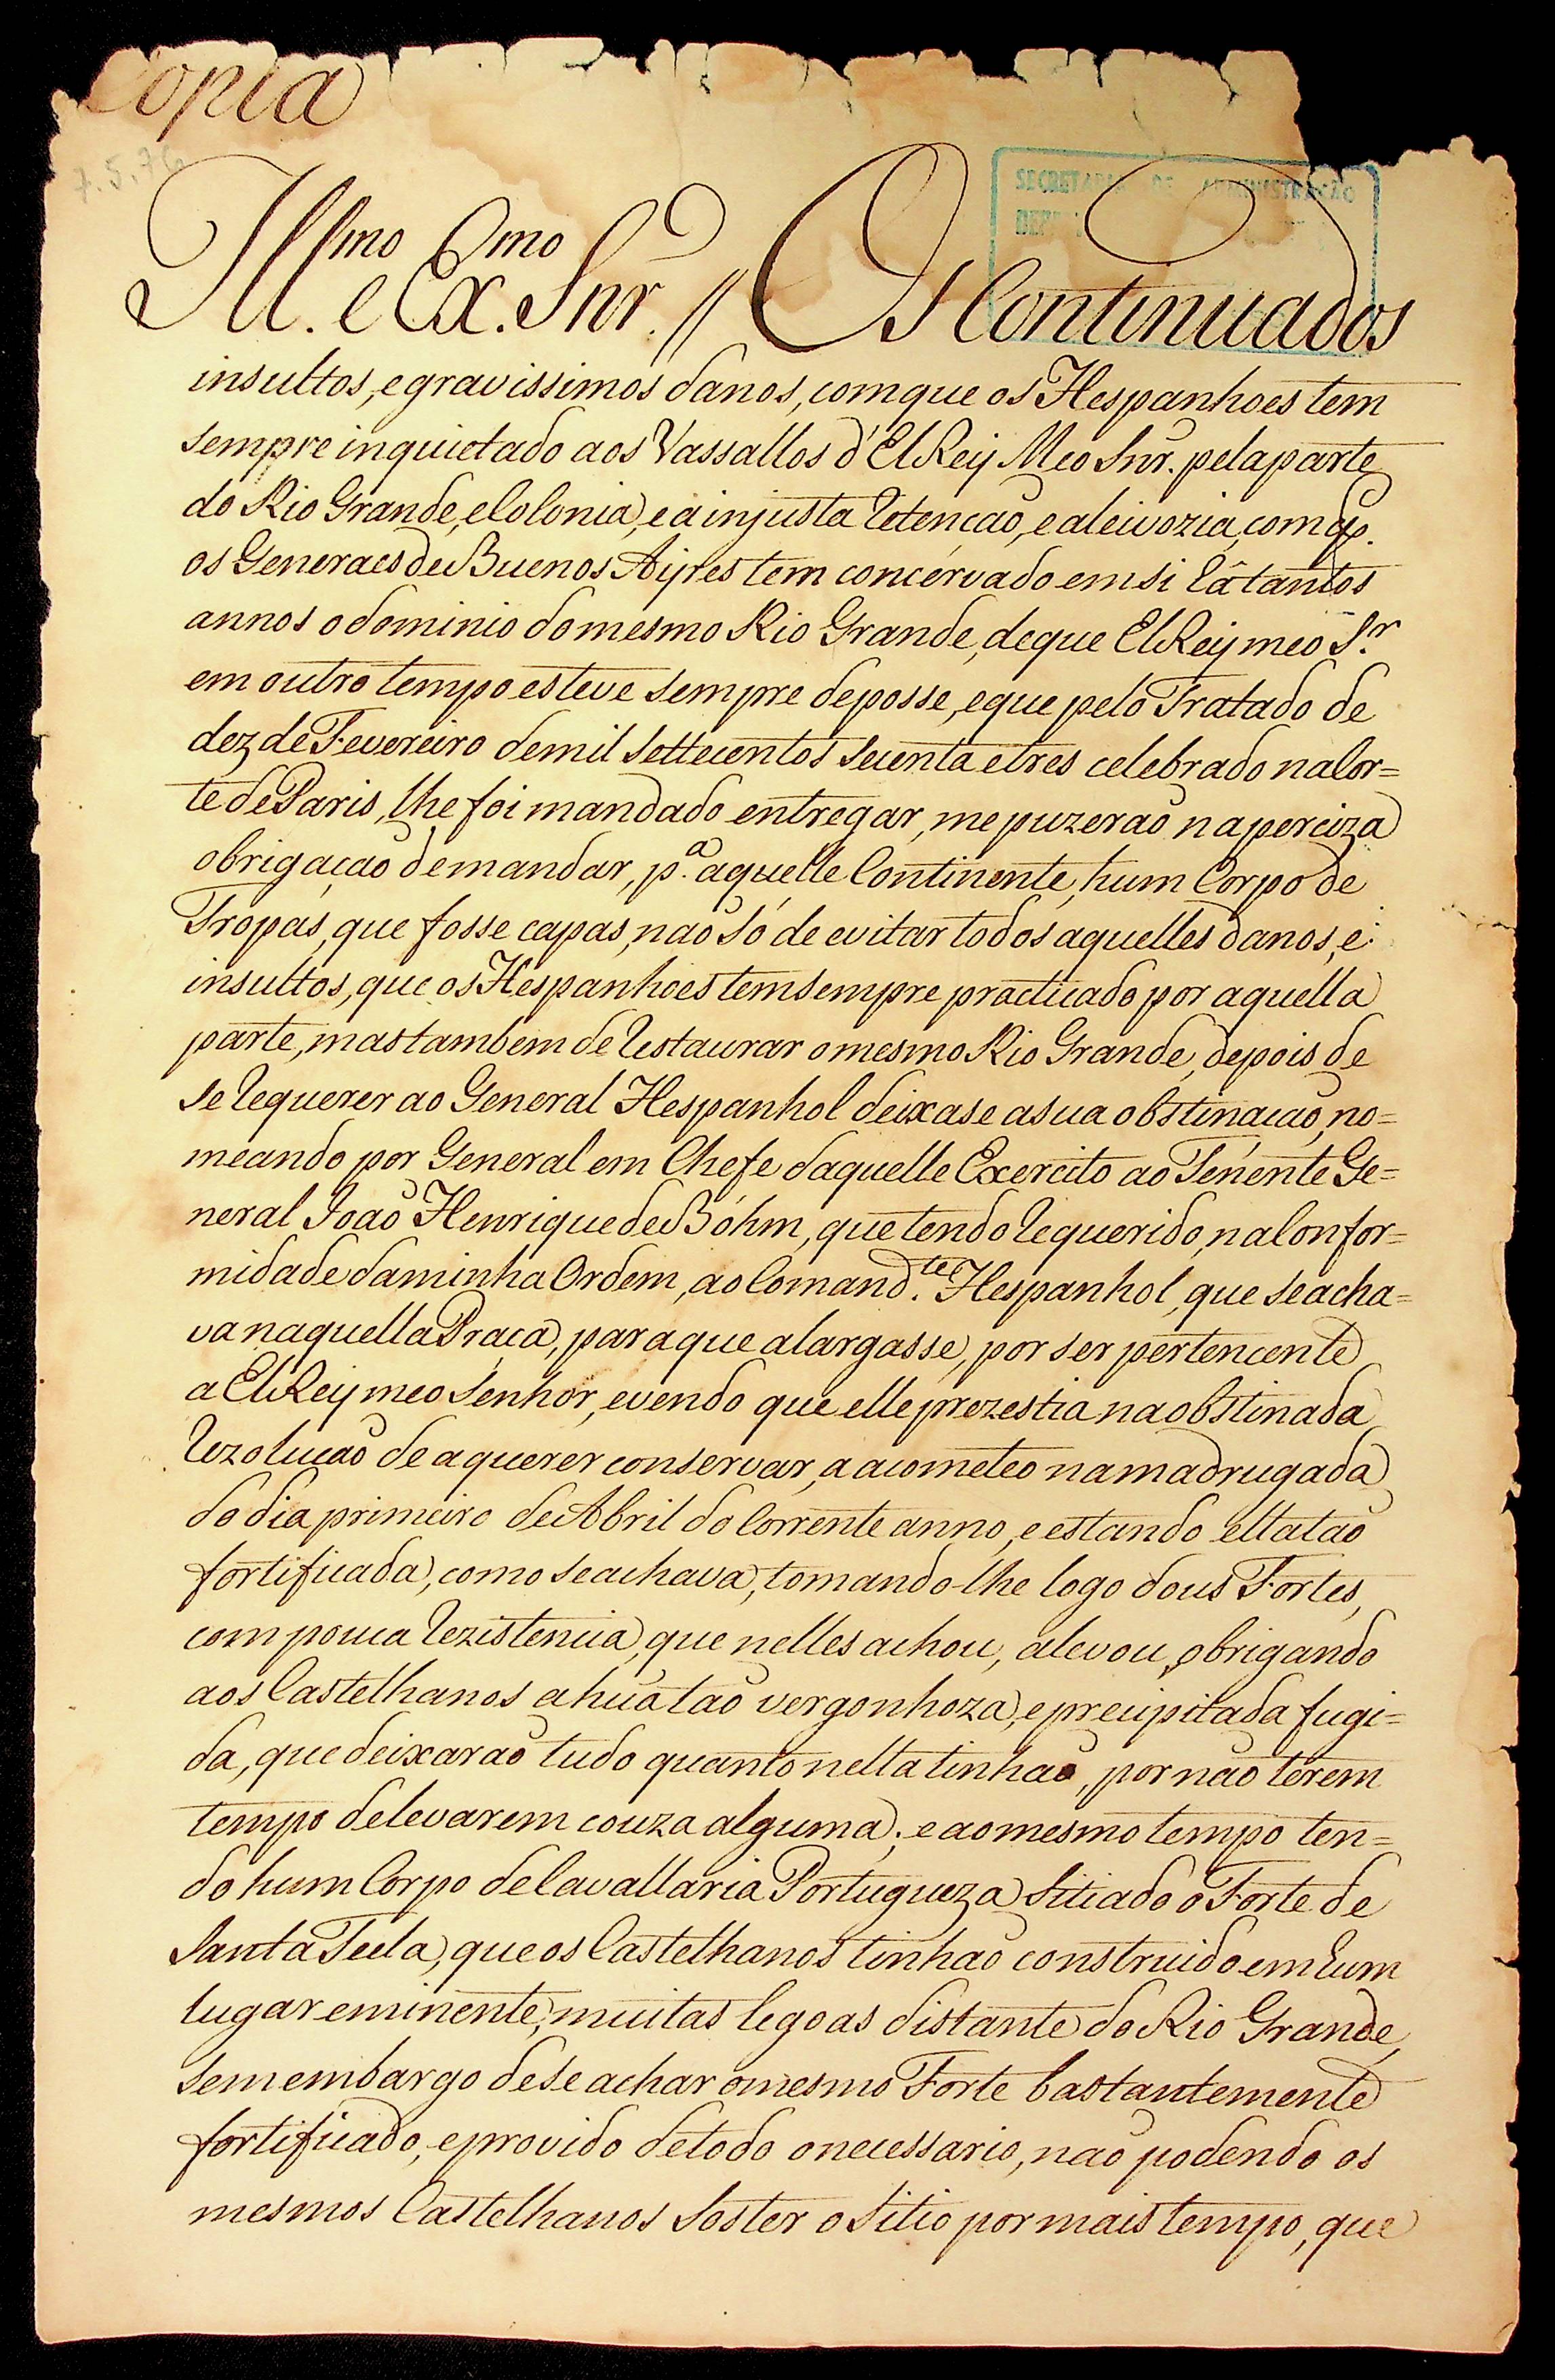 Copia
7.5.76
SECRETARIA DE ADMINISTRAÇÃO
Ill.mo e Ex.mo Snr. // Os Continuados
insultos, e gravissimos danos, com que os Hespanhoes tem
sempre inquietado aos Vassallos d'ElRey Meo Snr. pela parte
do Rio Grande, e Colonia, e a injusta retenção, e aleivozia, com q̃.
os Generaes de Buenos Ayres tem concervado em si ra tantos
annos o dominio do mesmo Rio Grande, de que ElRey meo S.r
em outro tempo esteve sempre de posse, e que pelo Tratado de
dez de Fevereiro de mil settecentos secenta e tres celebrado na Cor=
te de Paris, lhe foi mandado entregar, me puzerão na perciza
obrigação de mandar, p.a aquelle Continente, hum Corpo de
Tropas, que fosse capas, não só de evitar todos aquelles danos, e
insultos, que os Hespanhoes tem sempre practicado por aquella
parte, mas tambem de restaurar o mesmo Rio Grande, depois de
se requerer ao General Hespanhol deixase a sua obstinação, no=
meando por General em Chefe daquelle Exercito ao Tenente Ge=
neral João Henrique de Bóhm, que tendo requerido, na Confor=
midade da minha Ordem, ao Comand.te Hespanhol, que se acha=
va naquella Praça, para que a largasse, por ser pertencente
a ElRey meo Senhor, e vendo que elle prezestia na obstinada
rezolução de a querer conservar, a acometeo na madrugada
do dia primeiro de Abril do Corrente anno, e estando ella tão
fortificada, como se achava, tomando-lhe logo dous Fortes,
com pouca rezistencia, que nelles achou, a levou, obrigando
aos Castelhanos a hũa tão vergonhoza, e precipitada fugi=
da, que deixarão tudo quanto nella tinhão, por não terem
tempo de levarem couza alguma; e ao mesmo tempo ten=
do hum Corpo de Cavallaria Portugueza sitiado o Forte de
Santa Tecla, que os Castelhanos tinhão construido em hum
lugar eminente, muitas legoas distante do Rio Grande,
sem embargo de se achar o mesmo Forte bastantemente
fortificado, e provido de todo o necessario, não podendo os
mesmos Castelhanos soster o sitio por mais tempo, que